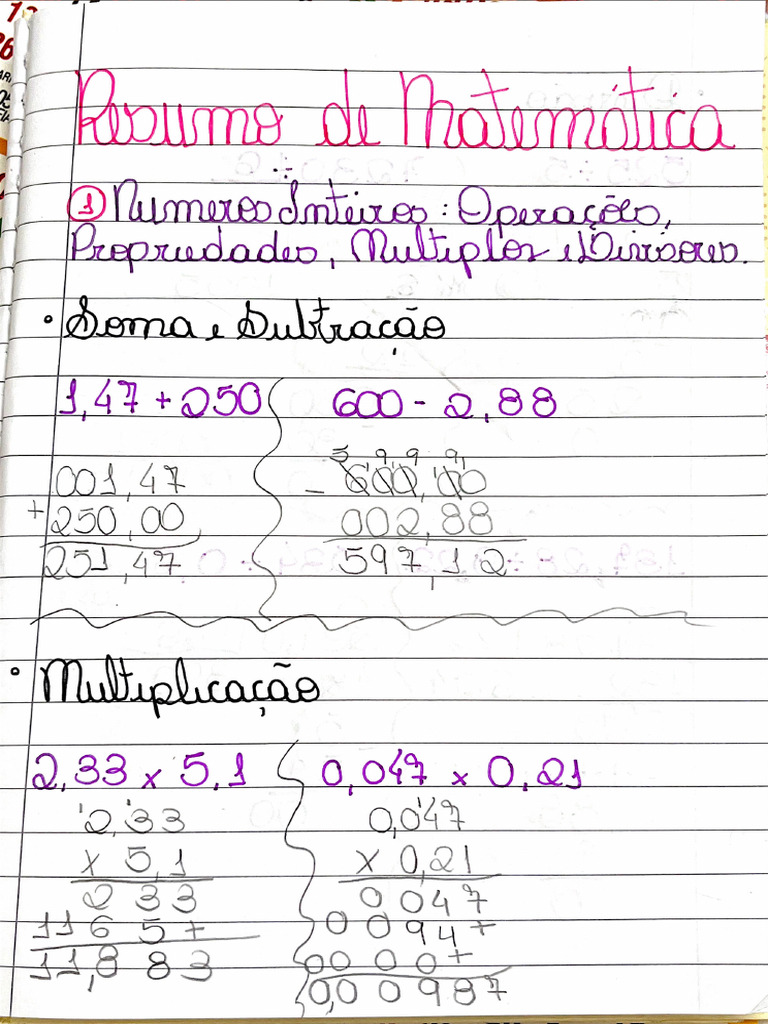 Resumo de Matemática
① Numeros Inteiros: Operações,
Propriedades, Multiplos e Divisores.
• Soma e Subtração
1,47 + 250
001,47
+ 250,00
251,47
600 - 2,88
5 9 9 9
- 600,00
002,88
597,12
• Multiplicação
2,33 x 5,1
2,33
x 5,1
2 3 3
11 6 5 +
11,8 8 3
0,047 x 0,21
0,047
x 0,21
0 0 4 7
0 0 9 4 +
00 0 0 +
0,0 0 9 8 7